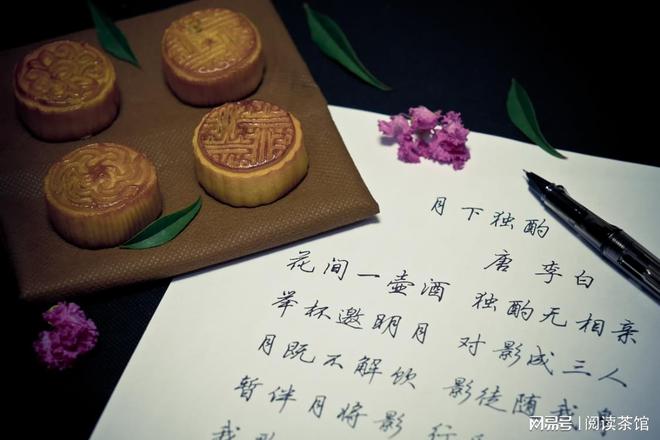 月下独酌
唐 李白
花间一壶酒 独酌无相亲
举杯邀明月 对影成三人
月既不解饮 影徒随我
暂伴月将影 行
我
网易号 | 阅读茶馆